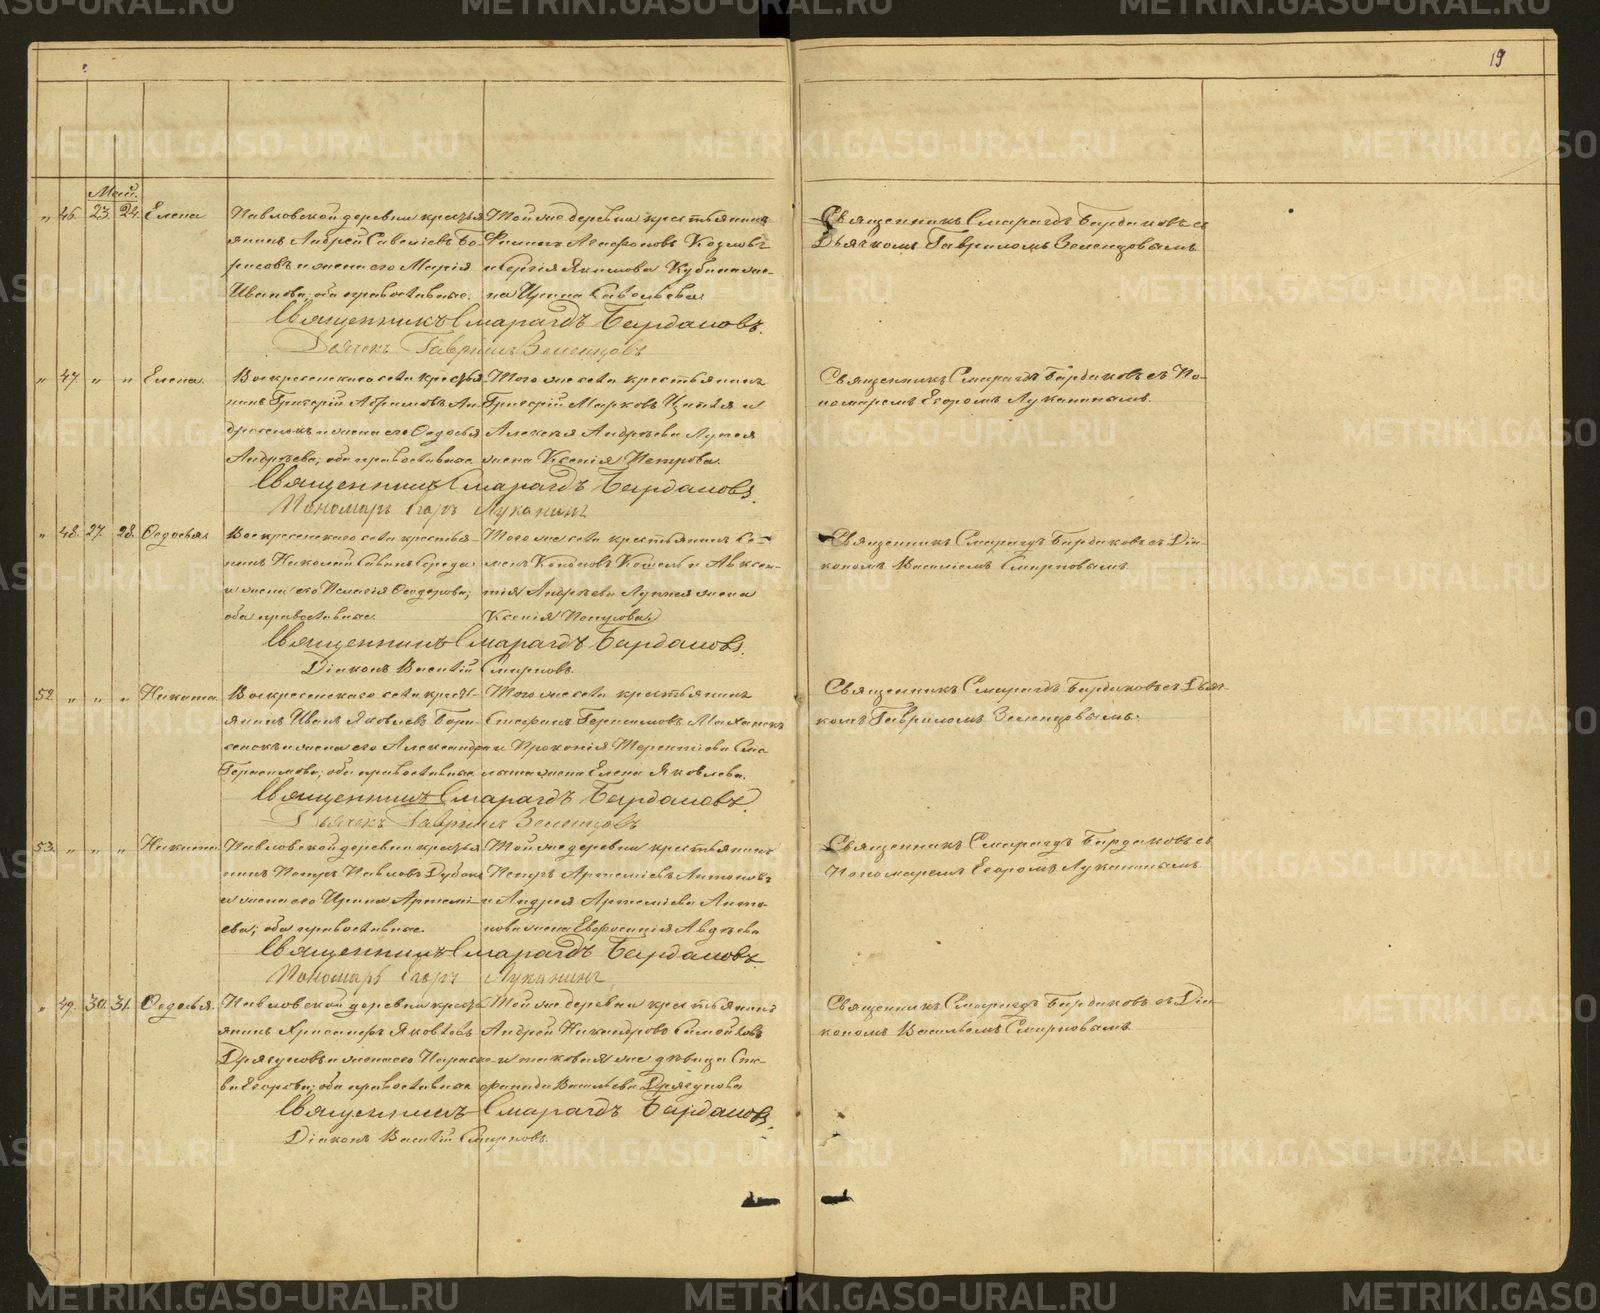 19
Май.
" 46. 23. 24. Елена
Павловской деревни крестья-
янинъ Андрей Савельевъ Бо-
рисовъ и жена его Марія
Иванова, оба православные.
Той же деревни крестьянинъ
Филипъ Агафоновъ Козловъ
и Сергія Якимова Кубина же-
на Ирина Савельева
Священникъ Смарагдъ Бардаковъ.
Дьячекъ Гавріилъ Зеленцовъ
Священникъ Смарагдъ Бардаковъ съ
Дьячкомъ Гавриломъ Зеленцовымъ.
" 47. " " Елена.
Воскресенскаго села крестья-
нинъ Григорій Абрамовъ Ан-
и жена его Ѳедосья
Андреева; оба православные.
Того же села крестьянинъ
Григорій Марковъ и
Алексѣя Андреева
жена Ксенія Петрова.
Священникъ Смарагдъ Бардаковъ.
Пономарь Егоръ Луканинъ
Священникъ Смарагдъ Бардаковъ съ По-
номаремъ Егоромъ Луканинымъ.
" 48. 27. 28. Ѳедосья.
Воскресенскаго села крестья-
нинъ Николай Савинъ Середа
и жена его Пелагія Ѳеодорова;
оба православные.
Того же села крестьянинъ Се-
менъ Кононовъ и Авксен-
тія Андреева жена
Ксенія Петрова
Священникъ Смарагдъ Бардаковъ.
Діаконъ Василій Смирновъ.
Священникъ Смарагдъ Бардаковъ съ Діа-
кономъ Василіемъ Смирновымъ
52. " " " Никита.
Воскресенскаго села крестья-
янинъ Иванъ Яковлевъ Бори-
сенокъ и жена его Александра
Герасимова; оба православные
Того же села крестьянинъ
Стефанъ Герасимовъ
и Прокопія Терентіева
жена Елена Яковлева.
Священникъ Смарагдъ Бардаковъ.
Дьячекъ Гавріилъ Зеленцовъ
Священникъ Смарагдъ Бардаковъ съ Дьяч-
комъ Гавриломъ Зеленцовымъ.
53. " " " Никита.
Павловской деревни крестья-
нинъ Петръ Павловъ
и жена его Ирина Артемі-
ева; оба православные.
Той же деревни крестьянинъ
Петръ Артеміевъ Антоновъ
и Андрея Артеміева Анто-
нова жена Евфросинія Авдѣева
Священникъ Смарагдъ Бардаковъ
Пономарь Егоръ Луканинъ
Священникъ Смарагдъ Бардаковъ съ
Пономаремъ Егоромъ Луканинымъ.
" 49. 30. 31. Ѳедосья.
Павловской деревни крестья-
янинъ Яковлевъ
Дрягуновъ и жена его Параске-
ва Егорова; оба православные
Той же деревни крестьянинъ
Андрей Никандровъ Самойловъ
и таковая же дѣвица Сте-
фанида Васильева Дрягунова
Священникъ Смарагдъ Бардаковъ.
Діаконъ Василій Смирновъ.
Священникъ Смарагдъ Бардаковъ съ Діа-
кономъ Васильемъ Смирновымъ
METRIKI.GASO-URAL.RU